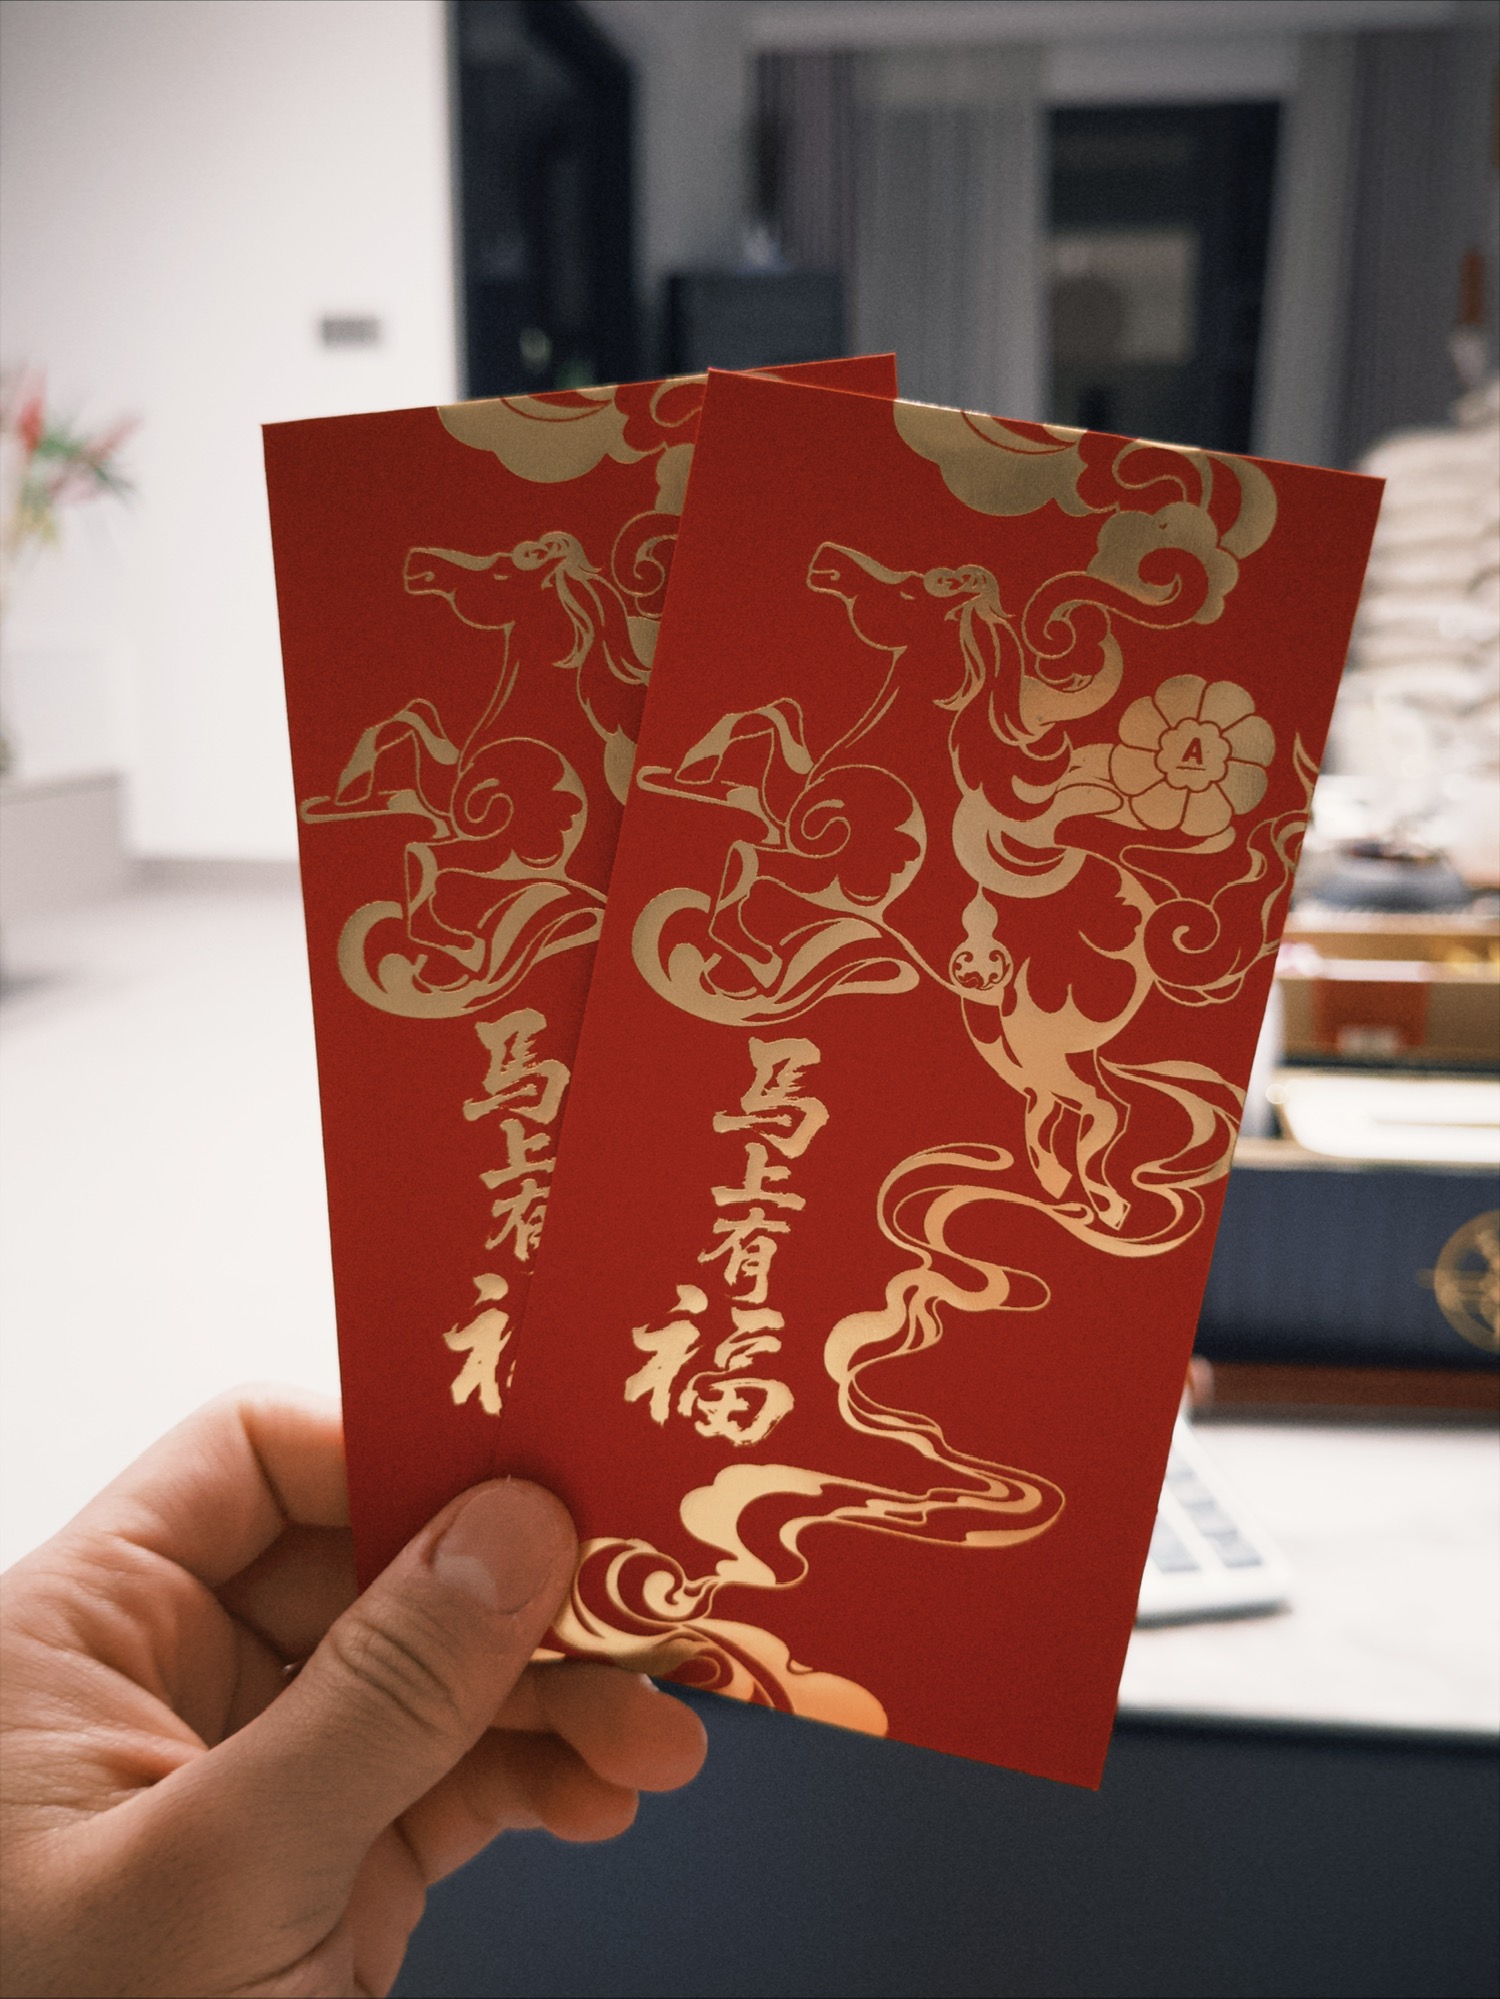 馬上有福
馬上有
A